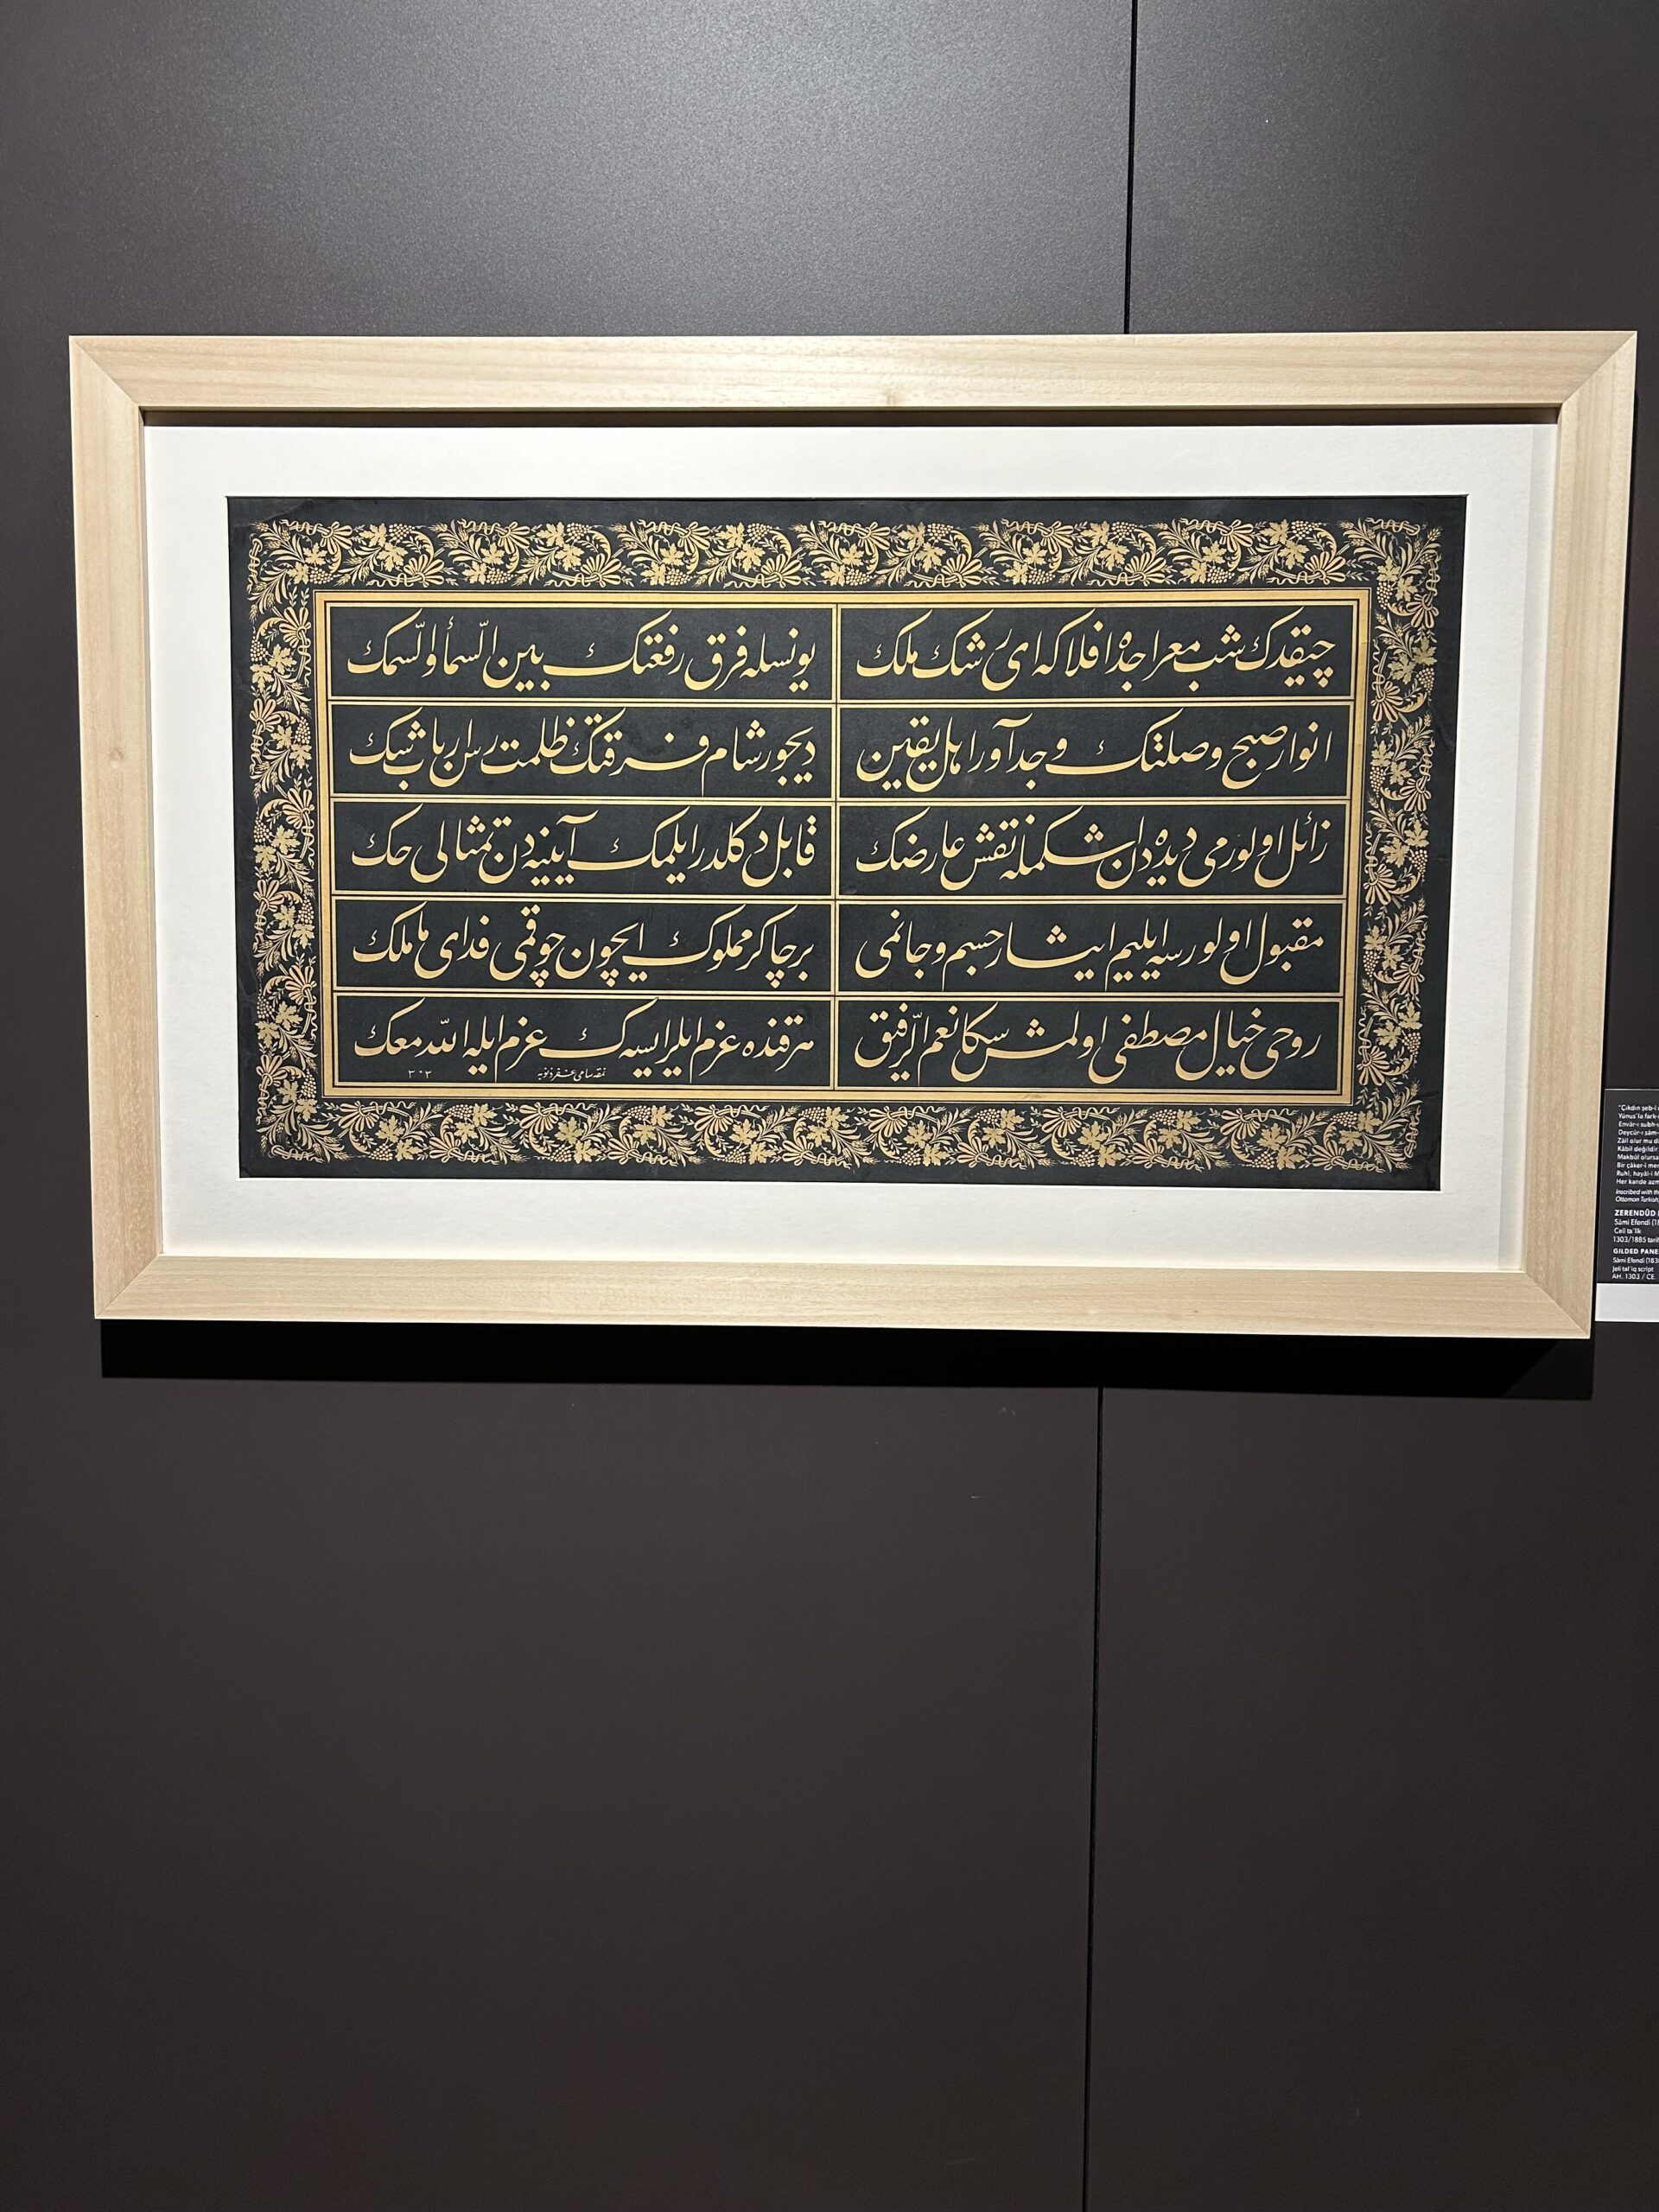 چیقدك شب معراجده افلاكه ای رشك ملك
یونسله فرق رفعتك بین السما والسمك
انوار صبح وصلتك وجد آور اهل یقین
دیجور شام فرقتك ظلمت رسان
زائل اولورمی دیده دن نقش عارضك
قابل دكلدر ایلمك آیینه دن تمثالی حك
مقبول اولورسه ایلیم ایثار جسم و جانمی
بر چاكر مملوك ایچون چوقمی فدای ما ملك
روحی خیال مصطفی اولمش سكا نعم الرفیق
هر قنده عزم ایلر ایسه ك عزم ایله الله معك
نمقه سامی غفر ذنوبه
٣٠٣
"Çıkdın şeb-i
Yûnus'la fark
Envâr-ı subh-
Deycûr-ı şâm-
Zâil olur mu di
Kābil değildir
Makbûl olursa
Bir çâker-i me
Ruhî, hayâl-i M
Her kande azm
Inscribed with th
Ottoman Turkish
ZERENDÛD
Sâmi Efendi (18
Celî ta'lîk
1303/1885 tarih
GILDED PANE
Sâmi Efendi (183
Jelî tal'iq script
AH. 1303 / CE.